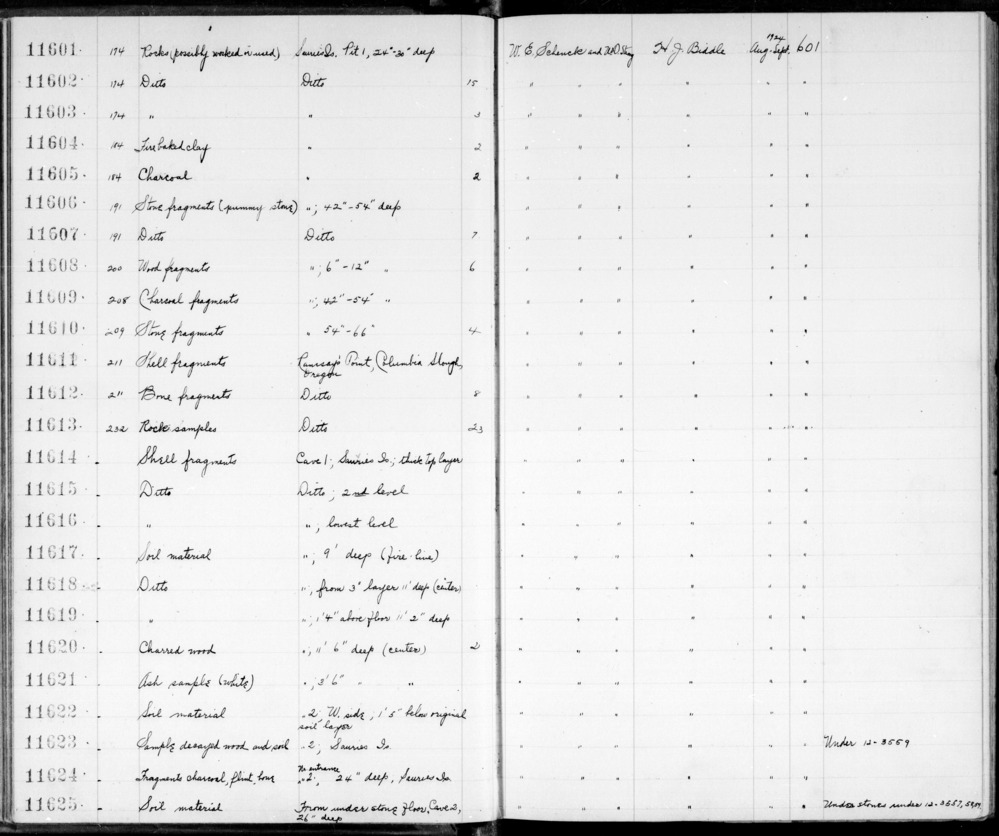 11601 174 Rocks (possibly worked or used) Sauries Is. Pit 1, 24"-30" deep W. E. Schenck and W.D. Strong H. J. Biddle 1924 Aug.-Sept. 601
11602 174 Ditto Ditto 15 " " " " " "
11603 174 " " 3 " " " " " "
11604 184 Fire baked clay " 2 " " " " " "
11605 184 Charcoal " 2 " " " " " "
11606 191 Stone fragments (pummy stone) "; 42"-54" deep " " " " " "
11607 191 Ditto Ditto 7 " " " " " "
11608 200 Wood fragments "; 6"-12" " 6 " " " " " "
11609 208 Charcoal fragments "; 42"-54" " " " " " " "
11610 209 Stone fragments " 54"-66" 4 " " " " " "
11611 211 Shell fragments Point, Columbia Slough,
Oregon " " " " " "
11612 211 Bone fragments Ditto 8 " " " " " "
11613 232 Rock samples Ditto 23 " " " " " "
11614 - Shell fragments Cave 1; Sauries Is; thick top layer " " " " " "
11615 - Ditto Ditto; 2nd level " " " " " "
11616 - " "; lowest level " " " " " "
11617 - Soil material "; 9' deep (fire-line) " " " " " "
11618 - Ditto "; from 3" layer 11' deep (center) " " " " " "
11619 - " "; 1'4" above floor 11' 2" deep " " " " " "
11620 - Charred wood "; 11' 6" deep (center) 2 " " " " " "
11621 - Ash sample (white) "; 3'6" " " " " " " " "
11622 - Soil material " 2; W. side; 1' 5" below original
soil layer " " " " " "
11623 - Sample decayed wood and soil " 2; Sauries Is. " " " " " " Under 12-3559
11624 - Fragments charcoal, flint, bone " 2; Nr entrance 24" deep, Sauries Is. " " " " " "
11625 - Soil material From under stone floor, Cave 2,
26" deep " " " " " " Under stones under 12-3557,